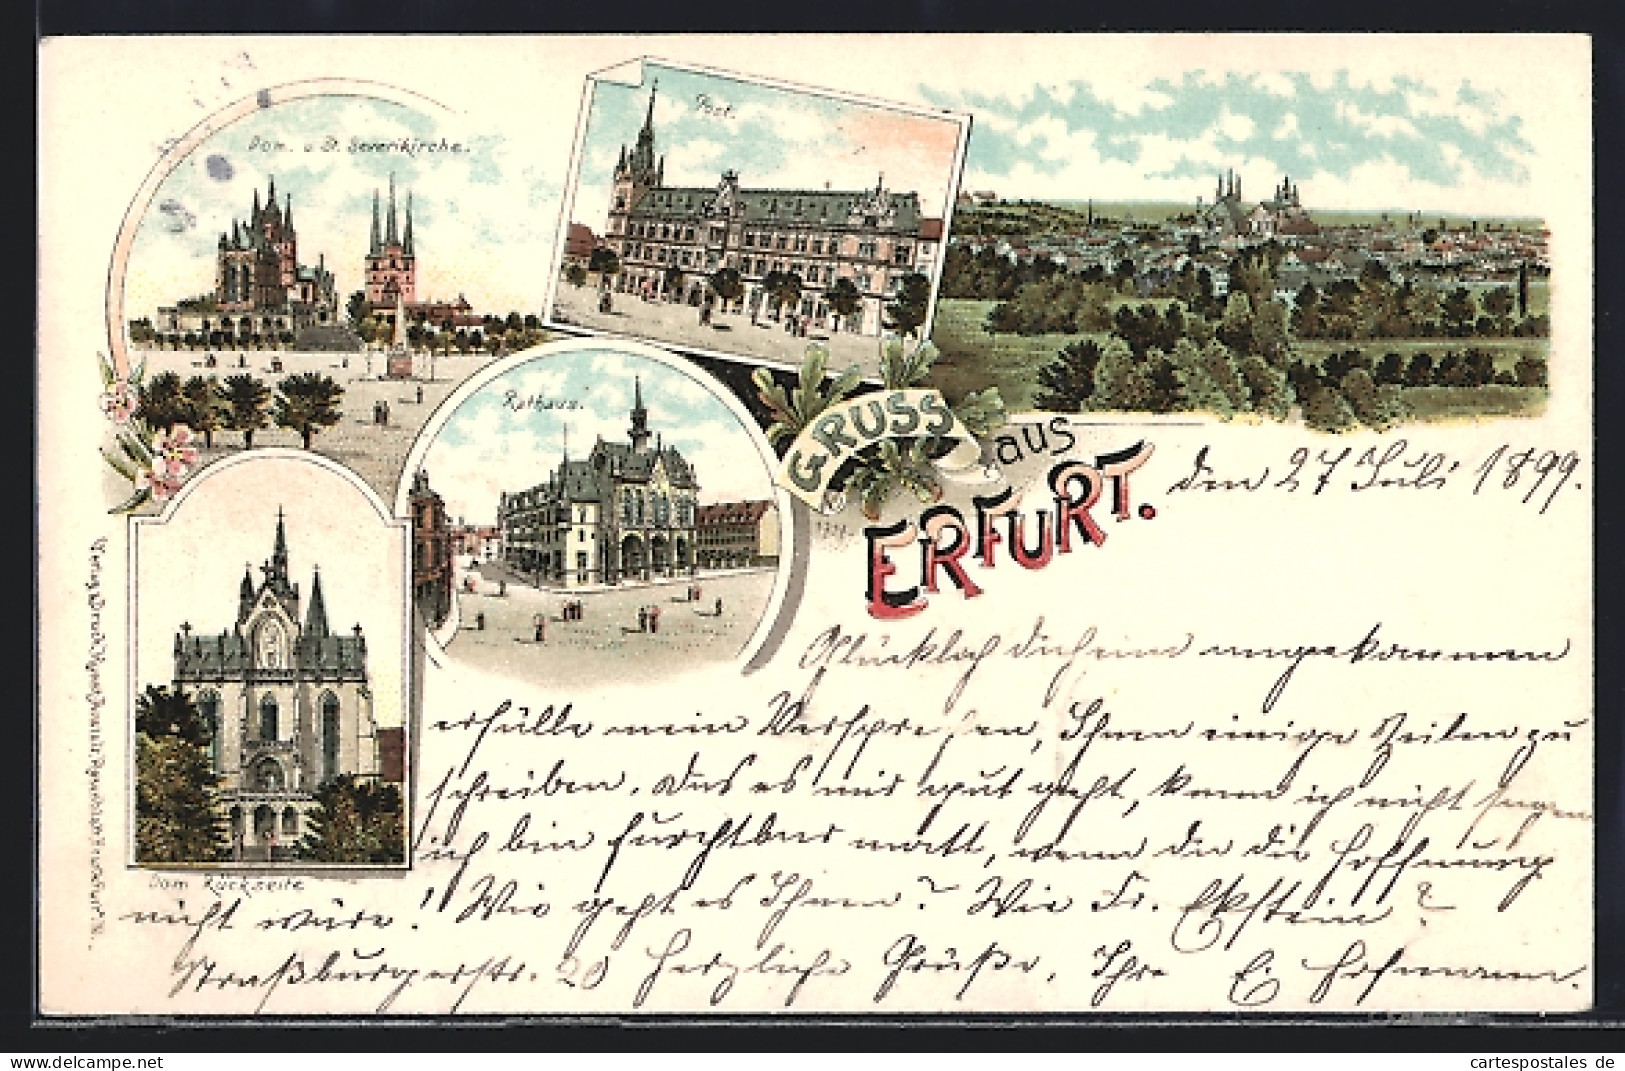 Dom. u. St. Severikirche.
Post.
Rathaus.
GRUSS
aus
ERFURT.
den 27 Juli 1899.
Glücklich daheim angekommen
erfülle mein Versprechen, Ihnen einige Zeilen zu
schreiben. Das es mir gut geht, kann ich nicht sagen
ich bin furchtbar matt, wenn da die Hoffnung
nicht wäre! Wie geht es Ihnen? Wie Fr. Ekstein?
Straßburgerstr. 20 Herzliche Grüße. Ihre E. Hofmann.
Dom Rückseite
Verlag
cartespostales de